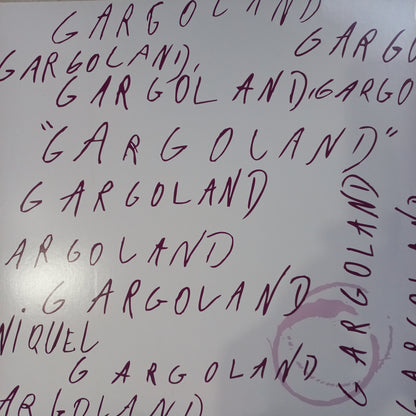 GARGOLAND
GARGO
GARGOLAND,
GARGOLAND,GARGO
"GARGOLAND"
GARGOLAND
ARGOLAND
.GARGOLAND
NIQUEL
GARGOLAND
ARGOLAND
GARGOLAND
GARGOLAND